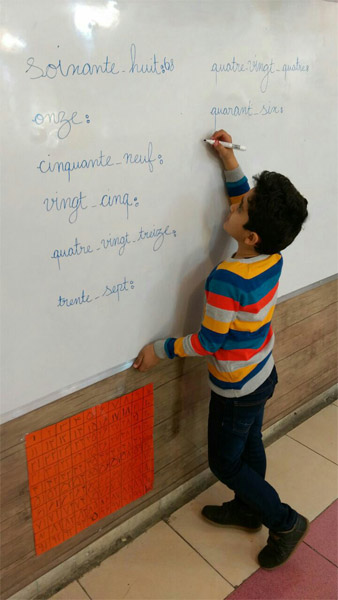 soixante_huit:68
onze:
cinquante_neuf:
vingt_cinq:
quatre_vingt_treize:
trente_sept:
quatre_vingt_quatre:
quarant_six: